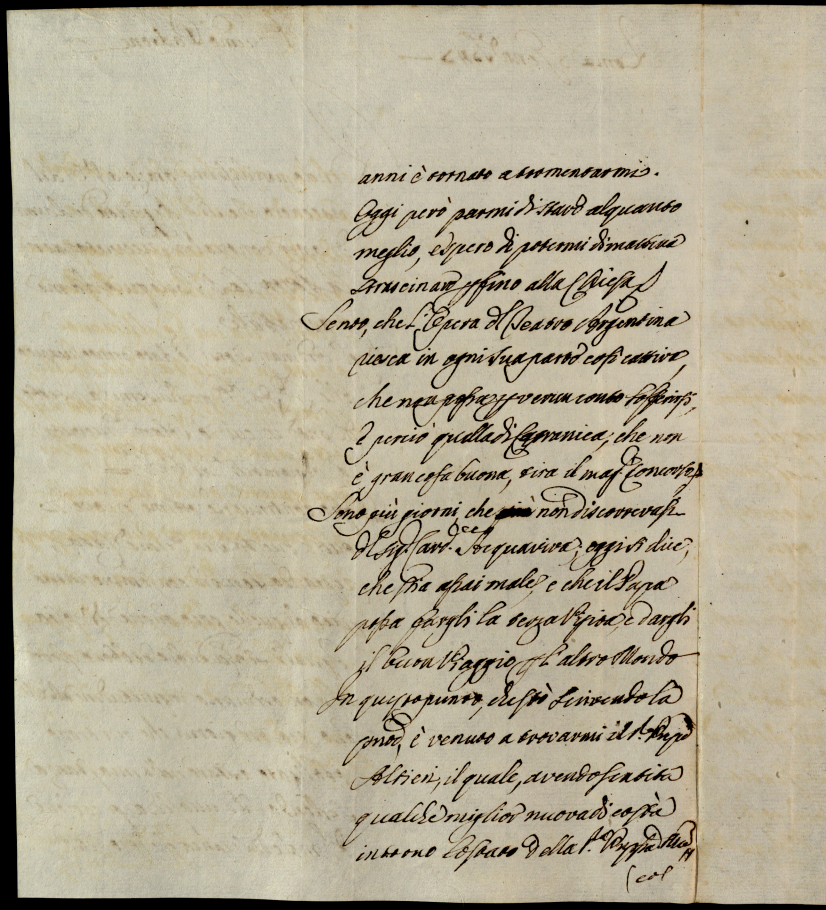 anni è tornato a tormentarmi.
Oggi però parmi di stare alquanto
meglio, e spero di potermi dimattina
strascinare fino alla Chiesa
Sento, che l'Opera del Teatro Argentina
riesca in ogni sua parte così cattiva,
che non possa per verun conto soffrirsi,
e perciò quella di Capranica, che non
è gran cosa buona, tira il mag.r concorso
Sono più giorni, che non discorrevasi
del Sig. Card. Acquaviva; oggi si dice,
che stia assai male, e che il Papa
possa fargli la terza Visita, e dargli
il buon Viaggio per l'altro Mondo
In questo punto, che stò scrivendo la
pnte, è venuto a trovarmi il
Altieri, il quale, avendo sentita
qualche miglior nuova di costà
intorno lo stato della
col